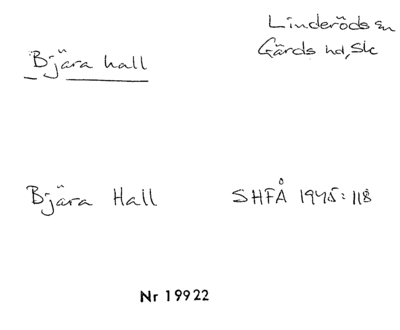 Linderöds sn
Gärds hd, Sk
Bjära hall
Bjära Hall SHFÅ 1945:118
Nr 19922